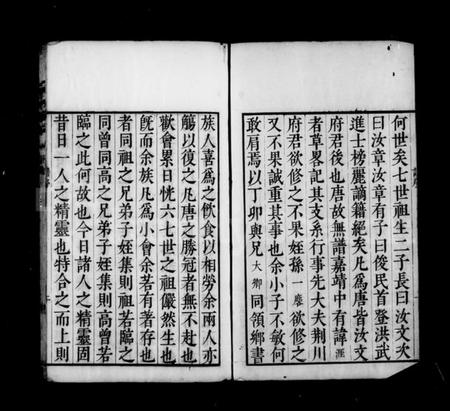 何世矣七世祖生二子長曰汝文次
曰汝章汝章有子曰俊民首登洪武
進士榜麗謫籍絕矣凡爲唐皆汝文
府君後也唐故無譜嘉靖中有諱涯
者草畧記其支系行事先大夫荆川
府君欲修之不果姪孫一麐欲修之
又不果誠重其事也余小子不敏何
敢肩焉以丁卯與兄大卿同領鄉書
族人喜爲之飲食以相勞余兩人亦
觴以復之凡唐之勝冠者無不赴也
歡會累日恍六七世之祖儼然生也
旣而余族凡爲小會余若有著存也
者同祖之兄弟子姪集則祖若臨之
同曾同高之兄弟子姪集則高曾若
臨之此何故也今日諸人之精靈固
昔日一人之精靈也特合之而上則